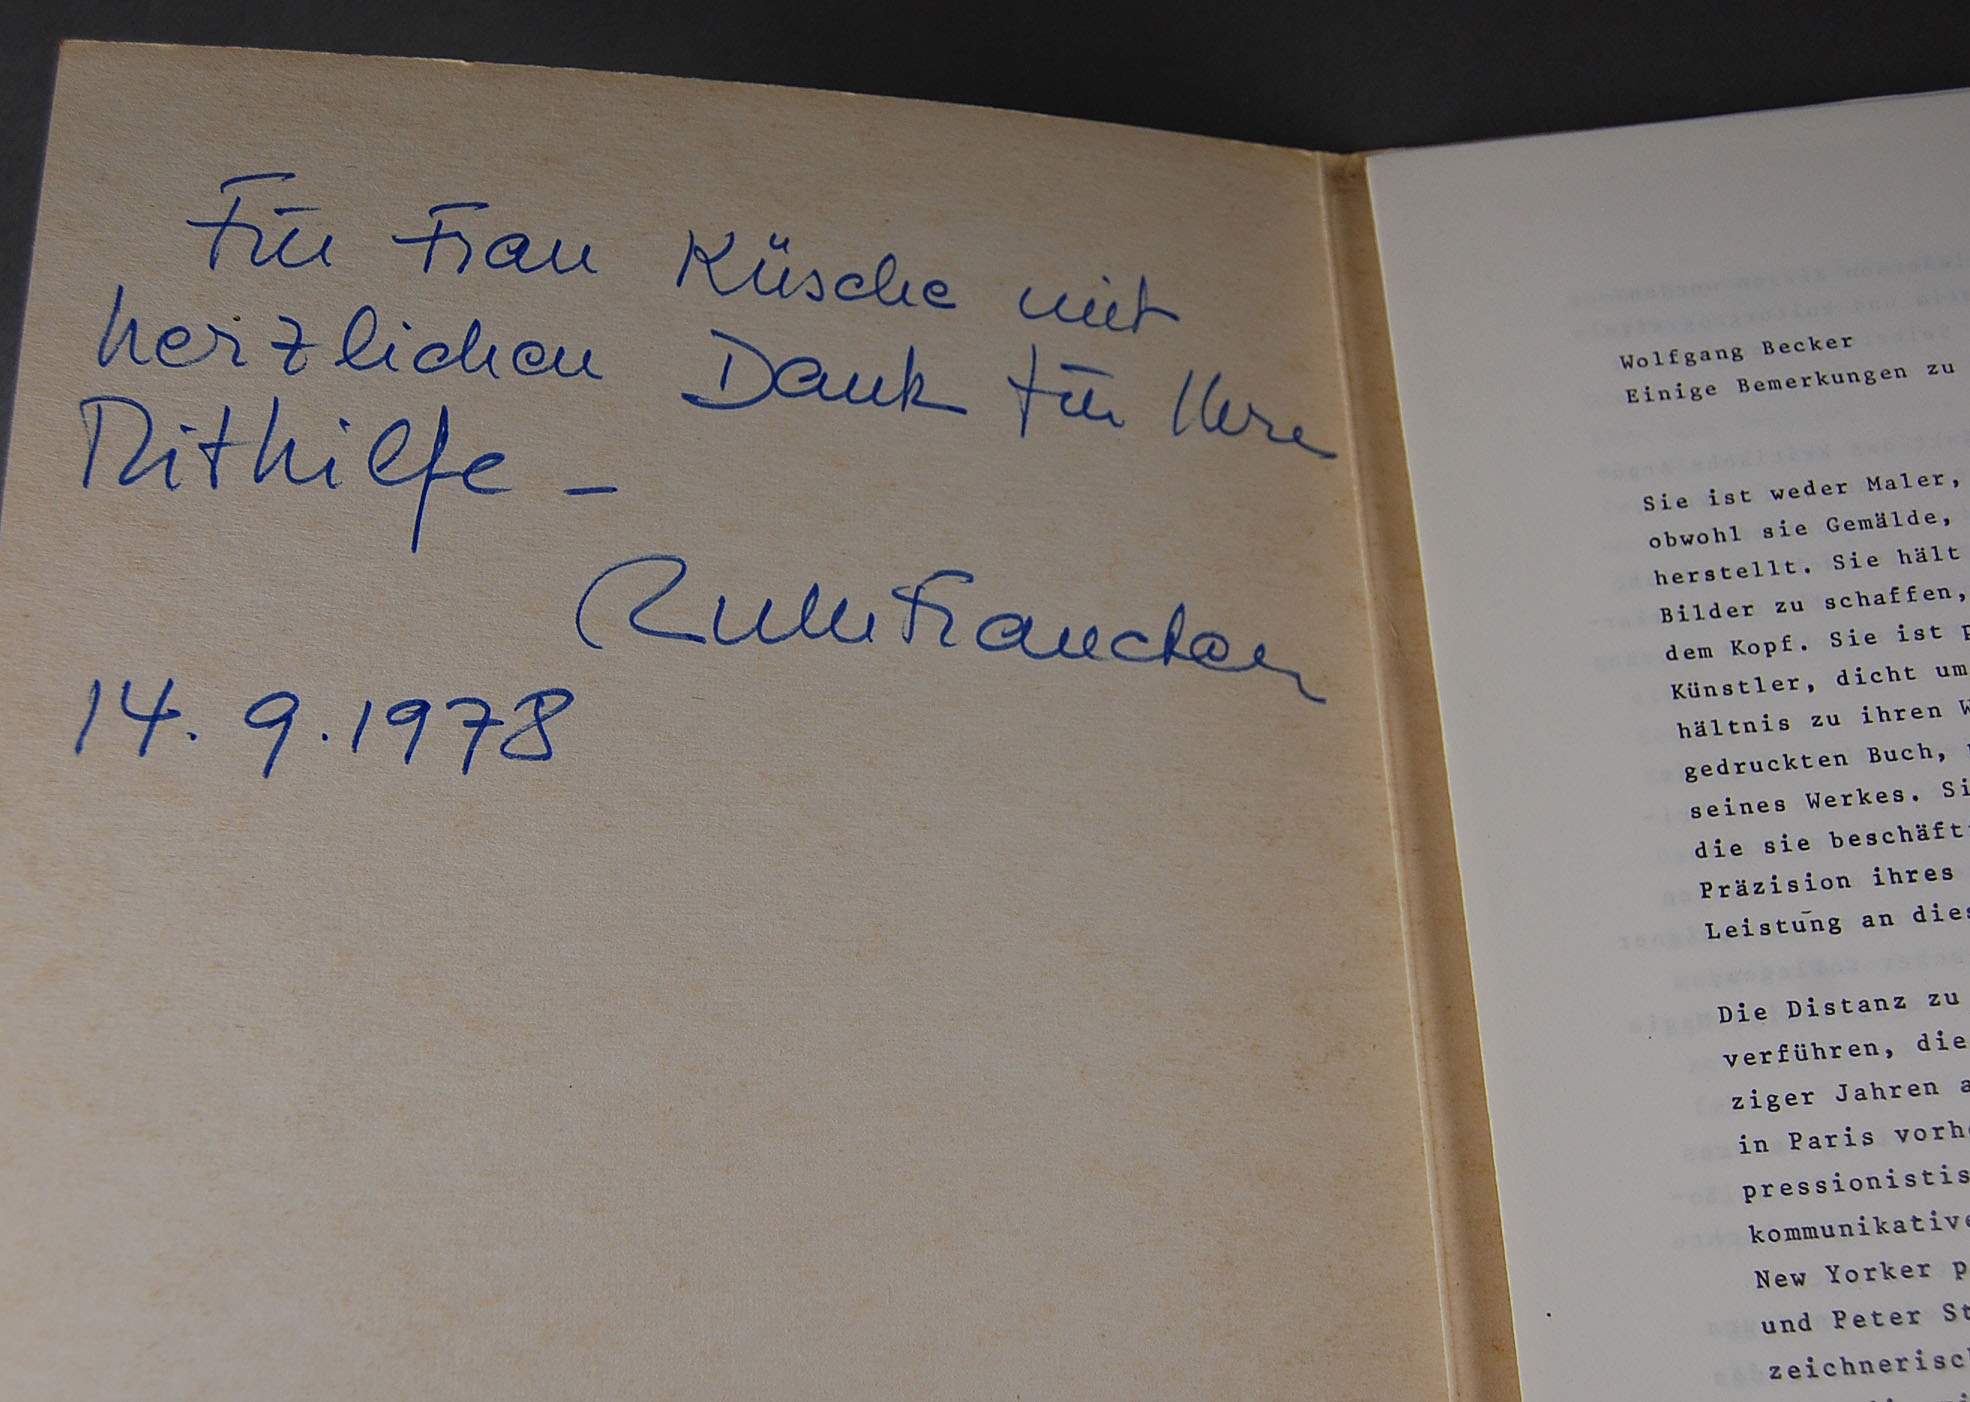 Für Frau Küsche mit
herzlichen Dank für Ihre
Mithilfe –
Ruth Francken
14. 9. 1978
Wolfgang Becker
Einige Bemerkungen zu
Sie ist weder Maler,
obwohl sie Gemälde,
herstellt. Sie hält
Bilder zu schaffen,
dem Kopf. Sie ist
Künstler, dicht um
hältnis zu ihren W
gedruckten Buch,
seines Werkes. Si
die sie beschäft
Präzision ihres
Leistung an dies
Die Distanz zu
verführen, die
ziger Jahren a
in Paris vorh
pressionistis
kommunikative
New Yorker p
und Peter St
zeichnerisc